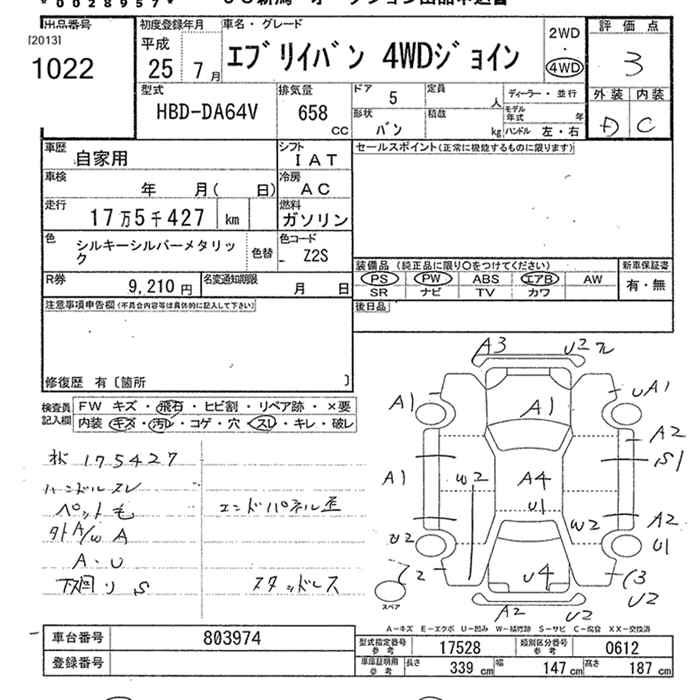 *0028957*
出品番号 初度登録年月 車名・グレード 2WD 評価点
[2013] 平成 エブリイバン 4WDジョイン ・ 3
1022 25 7月 4WD
型式 排気量 ドア 5 定員 人 ディーラー・並行 外装 内装
HBD-DA64V 658 cc 形状 バン 積載 kg モデル年式 年 D C
ハンドル 左・右
車歴 自家用 シフト IAT セールスポイント(正常に機能するものに限ります)
車検 年 月( 日) 冷房 AC
走行 17万5千427 km 燃料 ガソリン
色 シルキーシルバーメタリック 色替 色コード - Z2S
装備品(純正品に限り○をつけてください) 新車保証書
PS PW ABS エアB AW 有・無
SR ナビ TV カワ
R券 9,210円 名変通知期限 月 日 後日品
注意事項申告欄(不具合内容等は具体的に記入して下さい)
修復歴 有〔箇所 〕
検査員記入欄 FW キズ・飛石・ヒビ割・リペア跡・×要
内装 キズ・汚レ・コゲ・穴・スレ・キレ・破レ
175427
ハンドルスレ
ペット毛 エンドパネル歪
外A/W A
A・U
下回り S スタッドレス
A3 U2
A1 A1 UA1
A2
S1
A1 W2 A4
U1 A2
U2 W2 U1
U4
A2 U2 U2
スペア
A-キズ E-エクボ U-凹み W-補修跡 S-サビ C-腐食 XX-交換済
車台番号 803974
登録番号
型式指定番号 参考 17528 類別区分番号 参考 0612
車庫証明用 参考 長さ 339 cm 幅 147 cm 高さ 187 cm